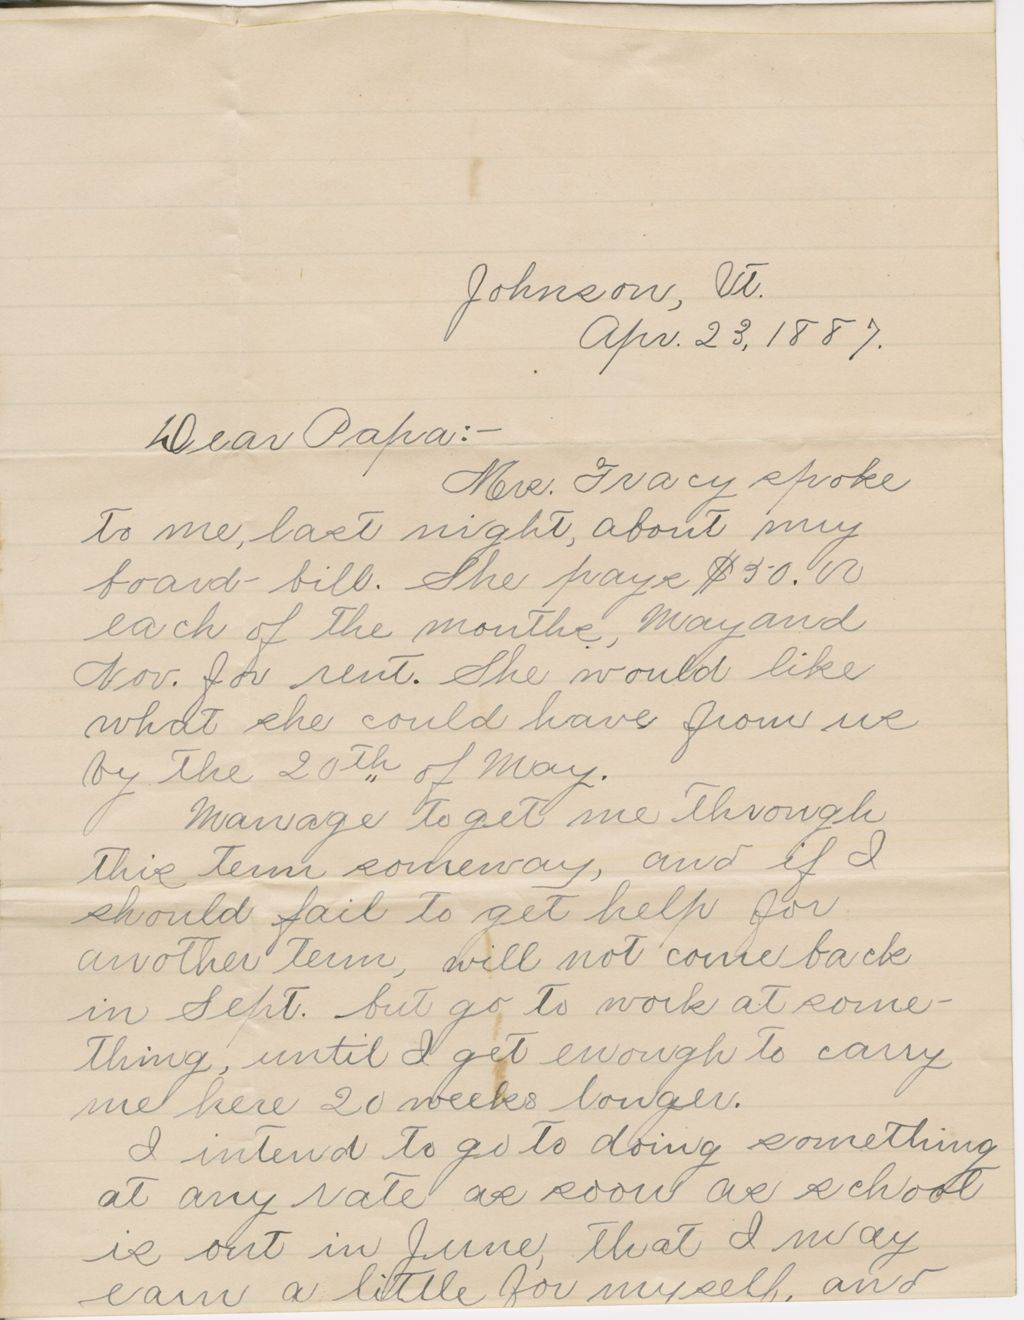 Johnson, Vt.
Apr. 23, 1887.
Dear Papa:-
Mrs. Tracy spoke
to me, last night, about my
board-bill. She pays $50.00
each of the months, May and
Nov. for rent. She would like
what she could have from us
by the 20th of May.
Manage to get me through
this term someway, and if I
should fail to get help for
another term, will not come back
in Sept. but go to work at some-
thing, until I get enough to carry
me here 20 weeks longer.
I intend to go to doing something
at any rate as soon as school
is out in June, that I may
earn a little for myself, and